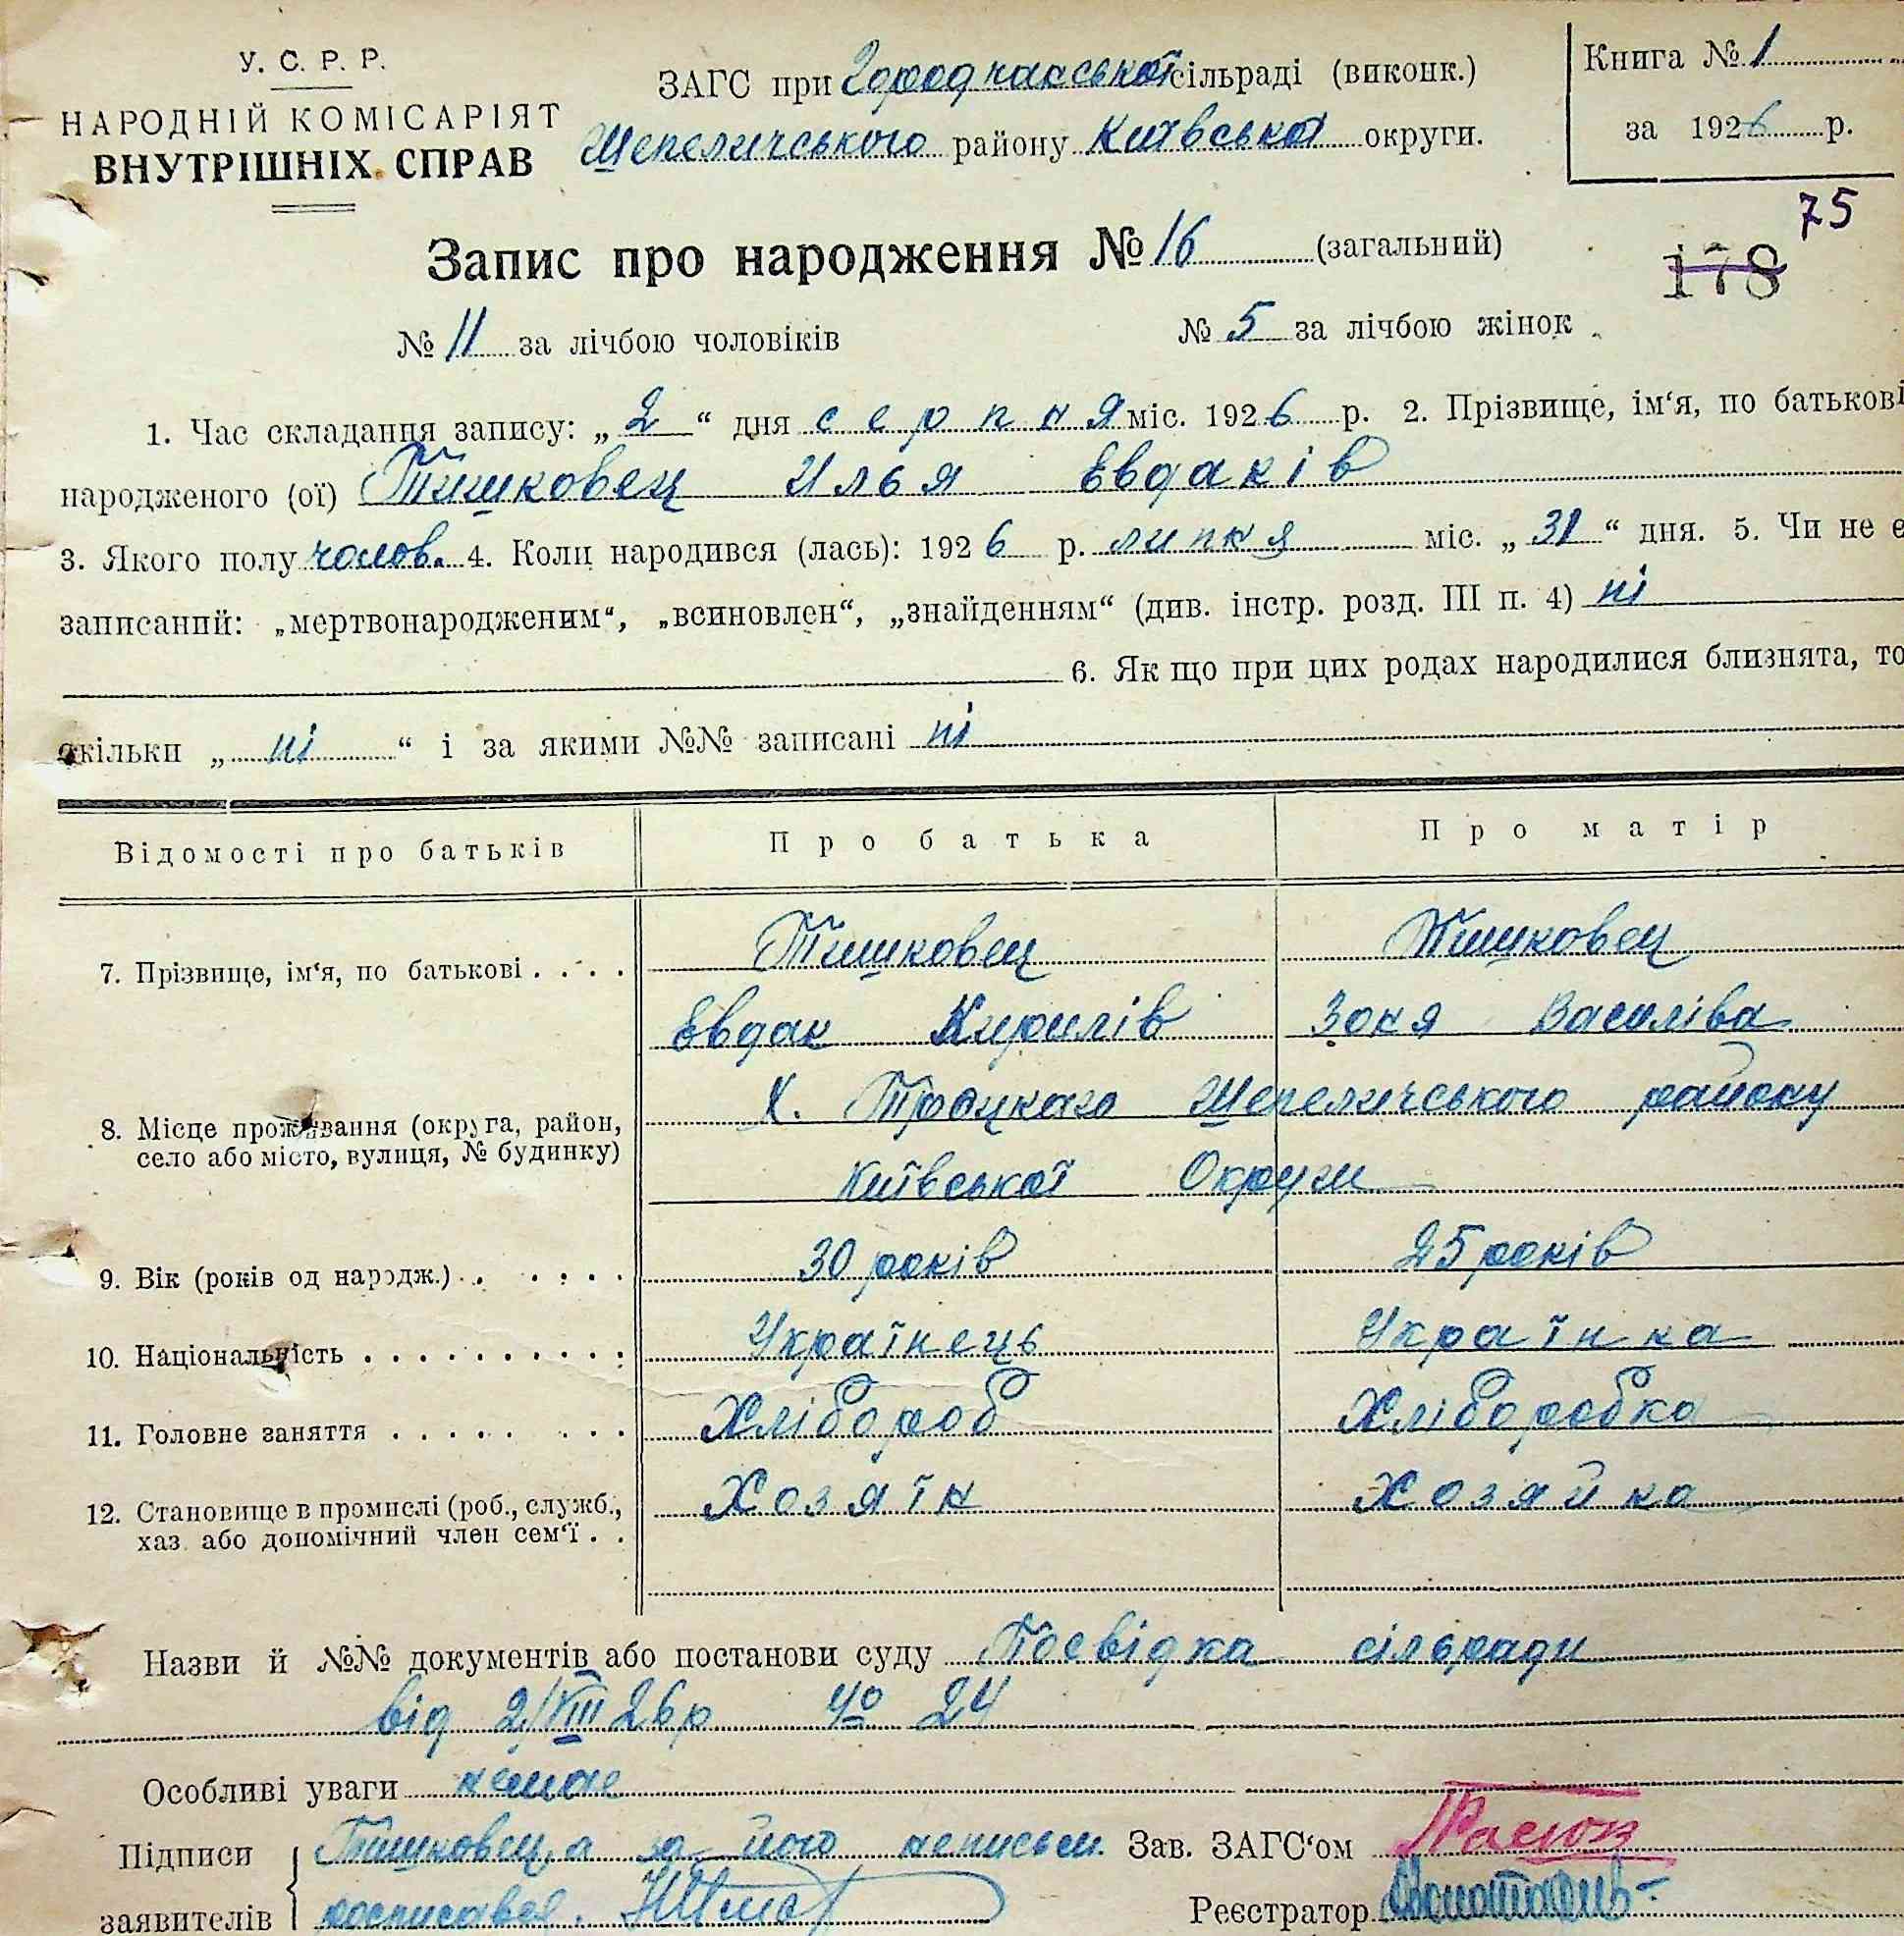 У. С. Р. Р.
НАРОДНІЙ КОМІСАРІЯТ
ВНУТРІШНІХ СПРАВ
ЗАГС при Городчанської сільраді (виконк.)
Шепеличського району Київської округи.
Книга № 1
за 1926 р.
75
178
Запис про народження № 16 (загальний)
№ 11 за лічбою чоловіків № 5 за лічбою жінок
1. Час складання запису: „2“ дня серпня міс. 1926 р. 2. Прізвище, ім‘я, по батькові
народженого (ої) Тишковец Илья Евдаків
3. Якого полу чолов. 4. Коли народився (лась): 1926 р. липня міс. „31“ дня. 5. Чи не є
записаний: „мертвонародженим“, „всиновлен“, „знайденням“ (див. інстр. розд. III п. 4) ні
6. Як що при цих родах народилися близнята, то
скільки „ні“ і за якими №№ записані ні
Відомості про батьків Про батька Про матір
7. Прізвище, ім‘я, по батькові . . . . Тишковец Тишковец
Евдак Кирилів Зоня Василіва
8. Місце проживання (округа, район, село або місто, вулиця, № будинку) Х. Троцкого Шепеличського району
Київської Округи
9. Вік (років од народж.) . . . . . 30 років 25 років
10. Національність . . . . . . . . . . Українець Українка
11. Головне заняття . . . . . . . . Хлібороб Хліборобка
12. Становище в промислі (роб., служб., Хозяїн Хозяйка
хаз. або допомічний член сем‘ї . .
Назви й №№ документів або постанови суду Посвідка сільради
від 2/VIII 26р № 24
Особливі уваги немає
Підписи Тишковец, а за його неписьм. Зав. ЗАГС‘ом
заявителів росписався. Реєстратор